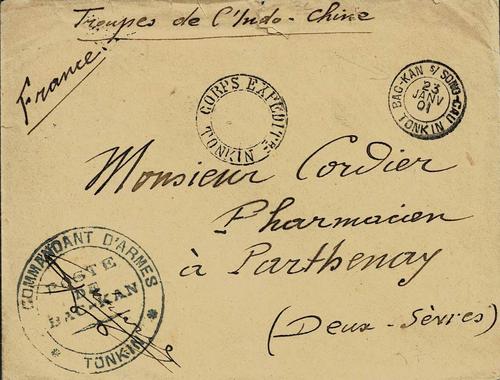 Troupes de l'Indo-Chine
France
CORPS EXPÉDIT.RE TONKIN
BAC-KAN S/ SONG-CAU
23
JANV
01
TONKIN
Monsieur Cordier
Pharmacien
à Parthenay
(Deux-Sèvres)
COMMANDANT D'ARMES
POSTE
DE
BAC-KAN
* TONKIN *